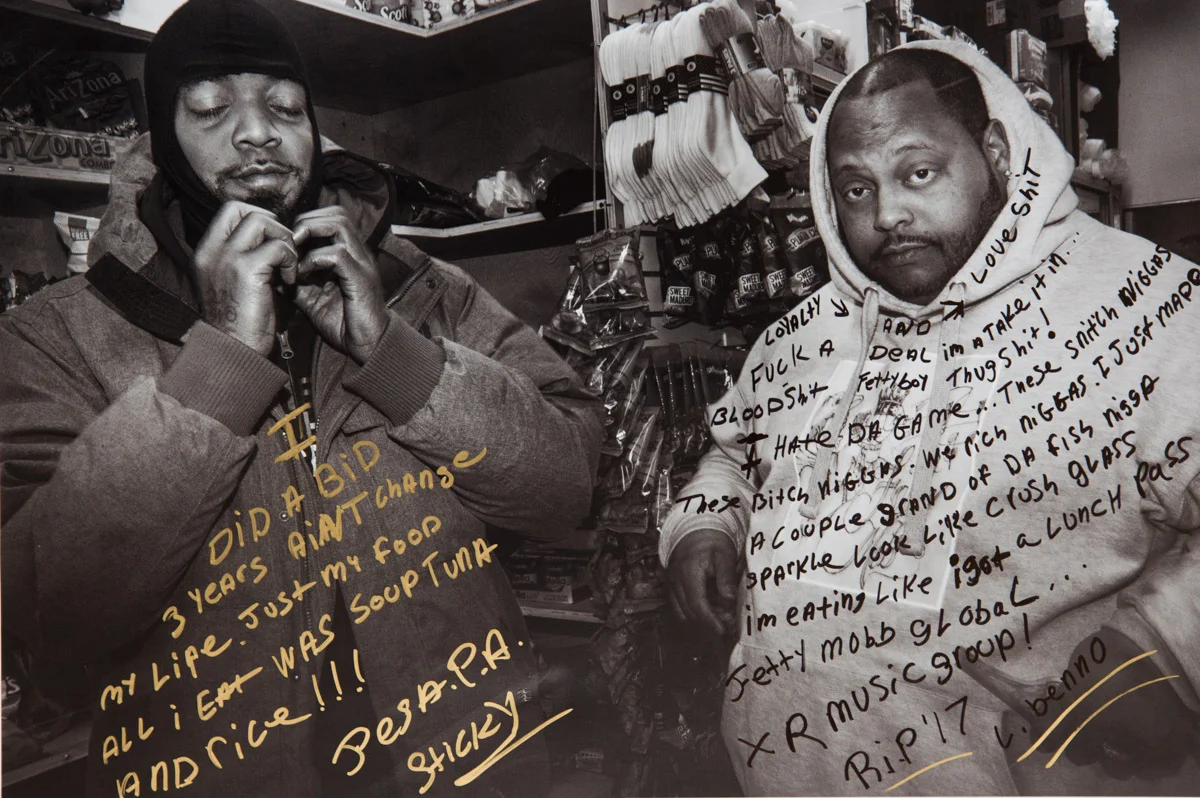 AriZona
AriZona
I
DiD A BiD
3 YEARS AiN'T CHANGE
MY LiFE. JUST MY FOOD
ALL i EAt WAS SOUP TUNA
AND rice!!!
A.P.A.
Sticky
SWEET
LOYALTY AND LOVE SHiT
FUCK A DEAL im A TAKE iT iN...
BLOODSHit FettyBoy ThugShit!
I HAte DA GAME... These Snitch NiGGAS
These BitcH NiGGAS. We Rich NiGGAS. I JUST MADE
A COUPLE GRAND OF DA FISH NiGGA
SPARKLE LOOK Like CRUSH GLASS
im eAting Like i got A LUNCH PASS
Jetty mobb GLOBAL...
XR MUSIC group!
R.i.P '17
L. benno